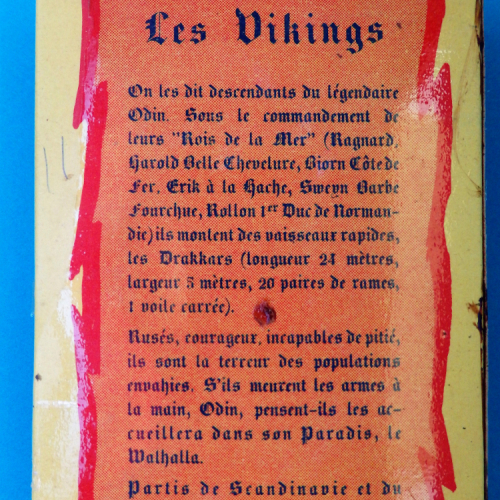 Les Vikings
On les dit descendants du légendaire
Odin. Sous le commandement de
leurs "Rois de la Mer" (Ragnard,
Harold Belle Chevelure, Biorn Côte de
Fer, Erik à la Hache, Sweyn Barbe
Fourchue, Rollon 1er Duc de Norman-
die) ils montent des vaisseaux rapides,
les Drakkars (longueur 24 mètres,
largeur 5 mètres, 20 paires de rames,
1 voile carrée).
Rusés, courageux, incapables de pitié,
ils sont la terreur des populations
envahies. S'ils meurent les armes à
la main, Odin, pensent-ils les ac-
cueillera dans son Paradis, le
Walhalla.
Partis de Scandinavie et du